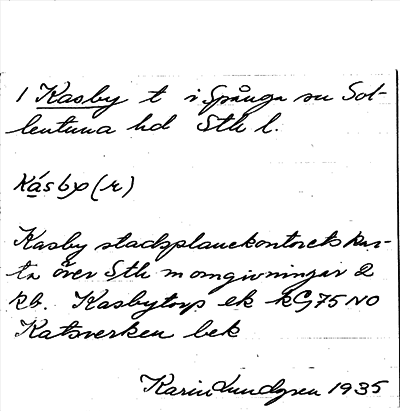 1 Kasby t i Spånga sn Sol-
lentuna hd Sth l.
kásby(r)
Kasby stadsplanekontorets kar-
ta över Sth m omgivningar 2
rb. Kasbytorp ek kG75NO
Katsverken bek
Karin Lundgren 1935